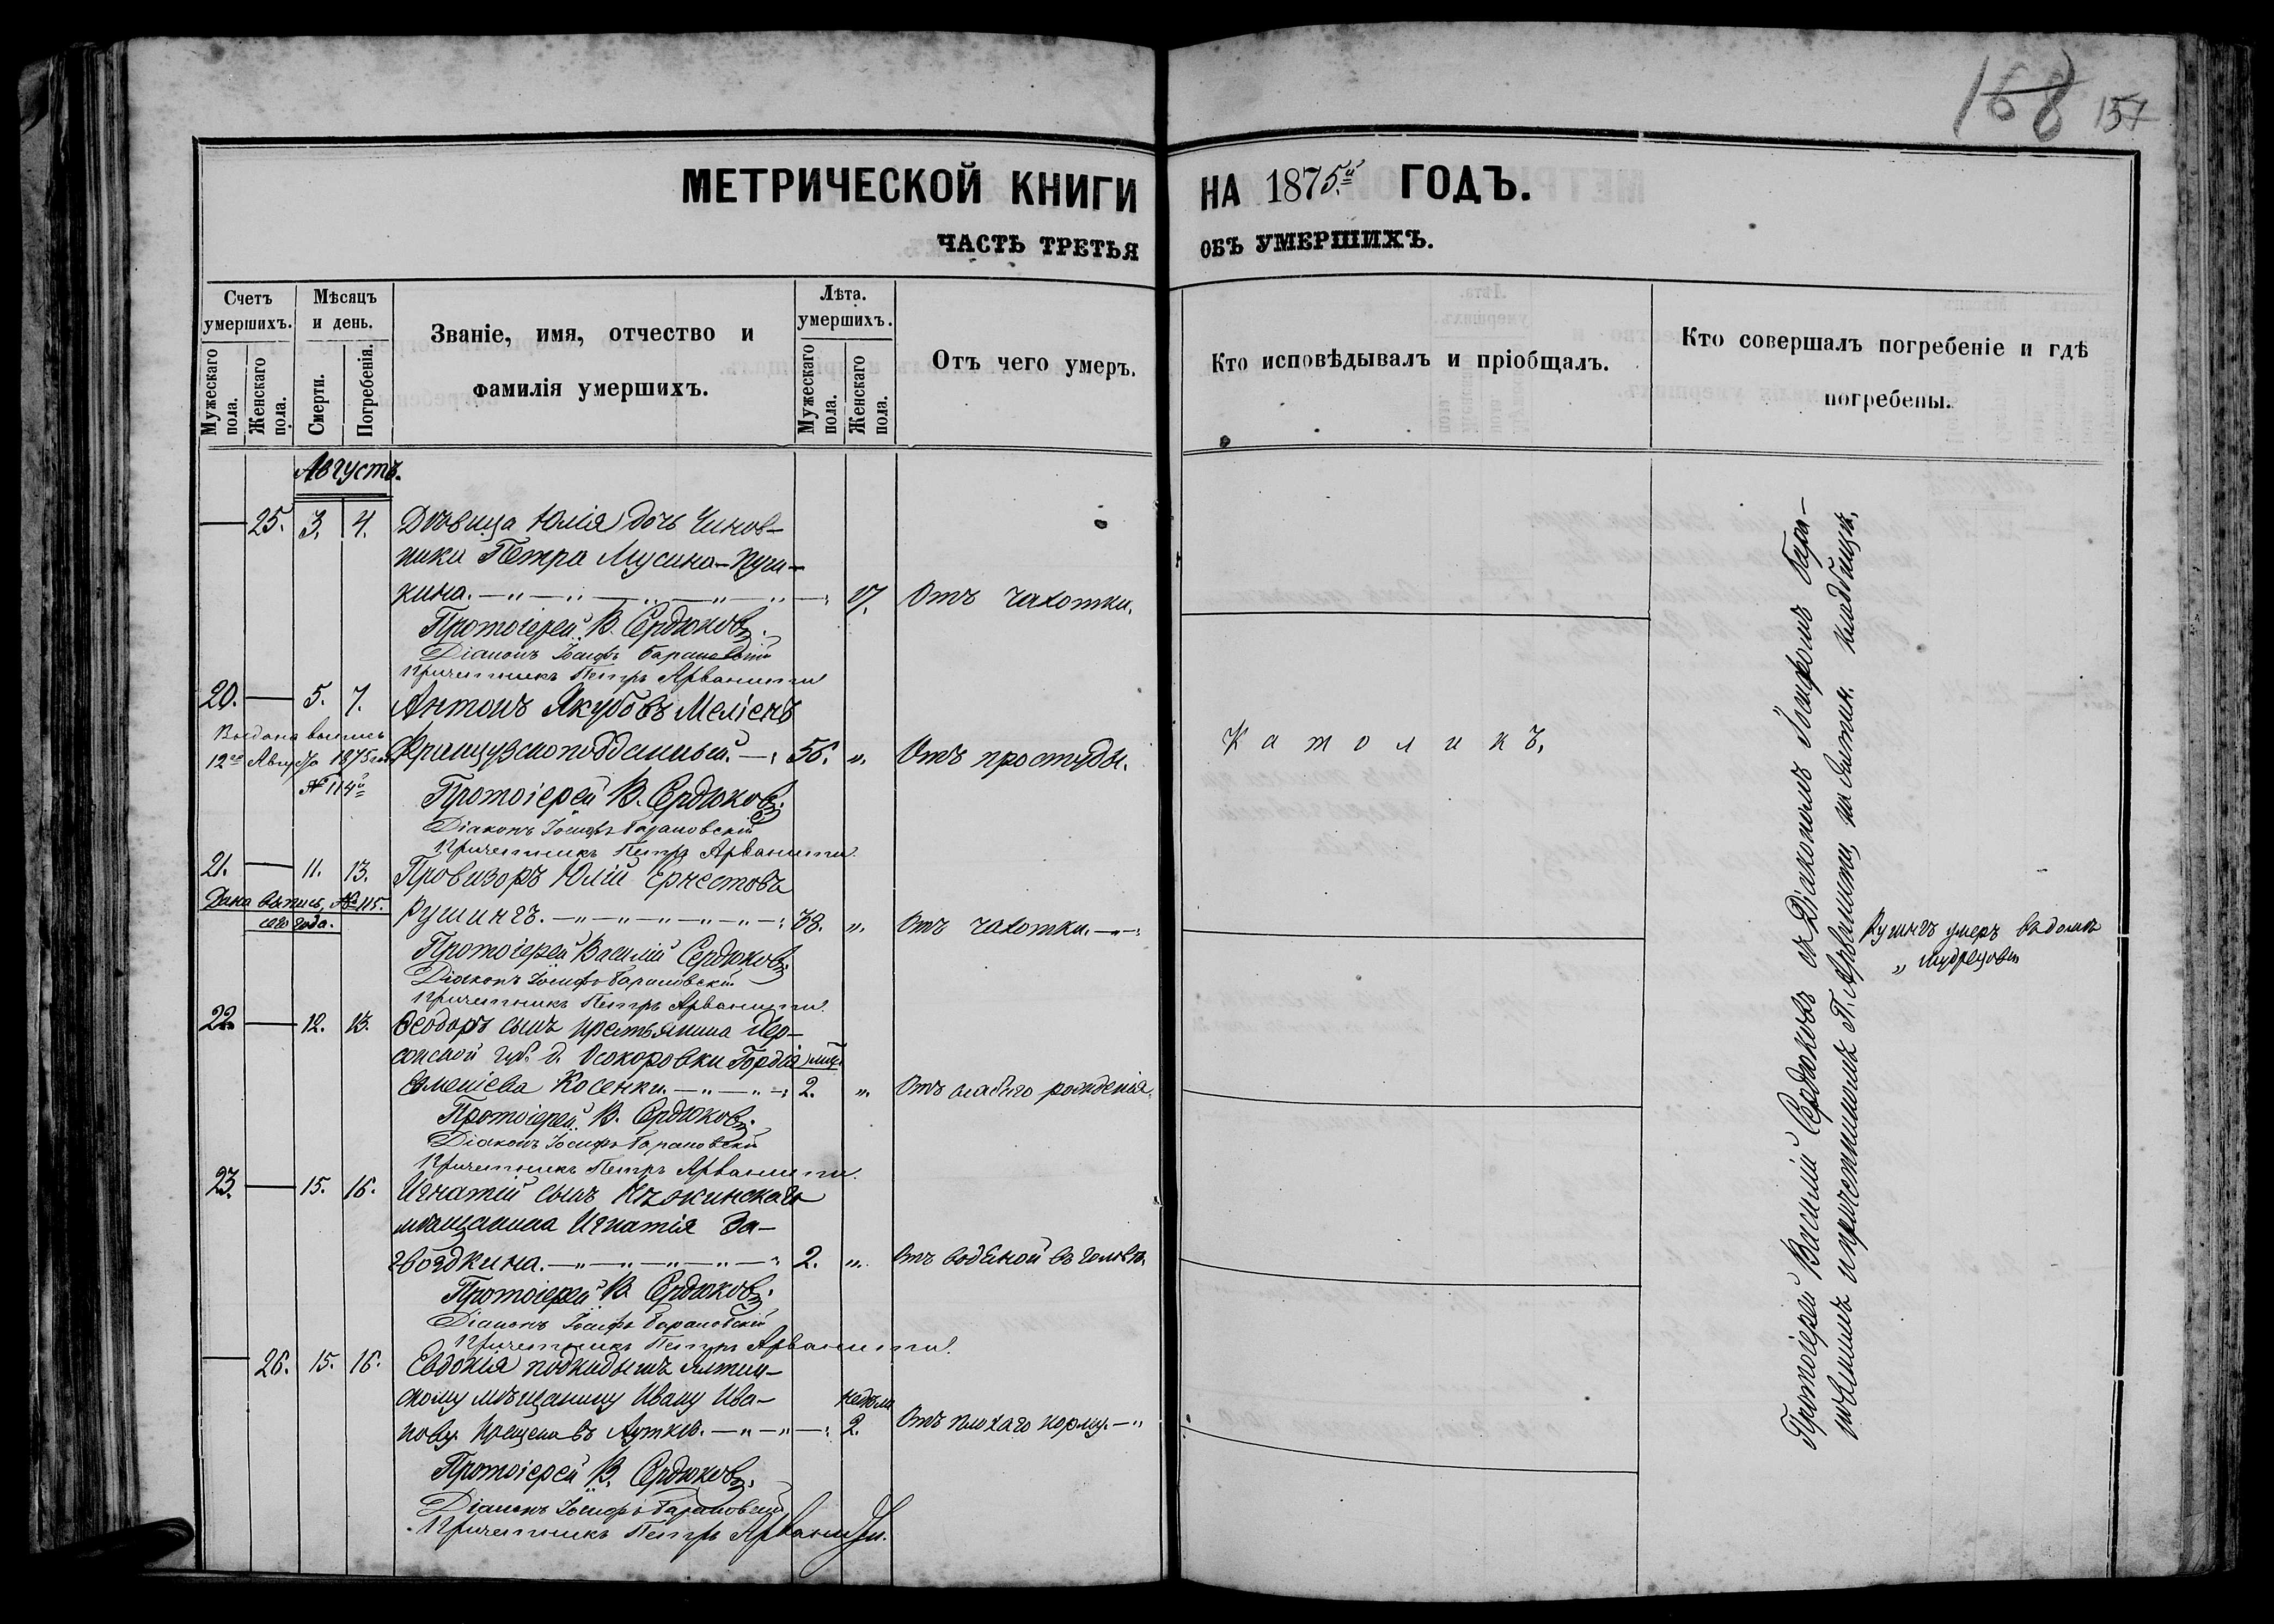 168 157
МЕТРИЧЕСКОЙ КНИГИ НА 1875й ГОДЪ.
ЧАСТЬ ТРЕТЬЯ ОБЪ УМЕРШИХЪ.
Счетъ умершихъ.
Мужескаго пола.
Женскаго пола.
Мѣсяцъ и день.
Смерти.
Погребенія.
Званіе, имя, отчество и
фамилія умершихъ.
Лѣта. умершихъ.
Мужескаго пола.
Женскаго пола.
Отъ чего умеръ.
Кто исповѣдывалъ и пріобщалъ.
Кто совершалъ погребеніе и гдѣ
погребены.
Августъ.
25. 3. 4. Дѣвица Юлія дочь Чинов-
ника Петра Мусина-Пуш-
кина. 17. Отъ чахотки.
Протоіерей В. Сердюковъ.
Діаконъ Іосифъ Барановскій
Причетникъ Петръ Арванити
20. 5. 7. Антонъ Якубовъ Меліенъ
Французскоподданный. 56. „ Отъ простуды. Католикъ.
Выдана выпись
12го Августа 1875 года
№ 114й
Протоіерей В. Сердюковъ.
Діаконъ Іосифъ Барановскій
Причетникъ Петръ Арванити.
21. 11. 13. Провизоръ Юлій Ернестовъ
Рушингъ. 38. „ Отъ чахотки.
Дана выпись, № 115.
сего года.
Рушингъ умеръ въ домѣ
„ Мудрецова
Протоіерей Василій Сердюковъ.
Діаконъ Іосифъ Барановскій
Причетникъ Петръ Арванити.
22. 12. 13. Ѳеодоръ сынъ крестьянина Хер-
сонской губ. д. Осокоровки Гордія
Евменіева Косенки. 2. „ Отъ слабаго рожденія.
Протоіерей В. Сердюковъ.
Діаконъ Іосифъ Барановскій
Причетникъ Петръ Арванити.
23. 15. 16. Игнатій сынъ
мѣщанина Игнатія За-
гвоздкина. 2. „ Отъ водяной въ головѣ.
Протоіерей В. Сердюковъ.
Діаконъ Іосифъ Барановскій
Причетникъ Петръ Арванити.
26. 15. 16. Евдокія подкидышъ Ялтин-
скому мѣщанину Ивану Ива-
нову. Крещена въ Ауткѣ. недѣли 2. Отъ плохаго корму.
Протоіерей В. Сердюковъ.
Діаконъ Іосифъ Барановскій
Причетникъ Петръ Арванити.
Протоіерей Василій Сердюковъ съ Діакономъ Іосифомъ Бара-
новскимъ и причетникомъ П. Арванити, на Ялтин. кладбищѣ.